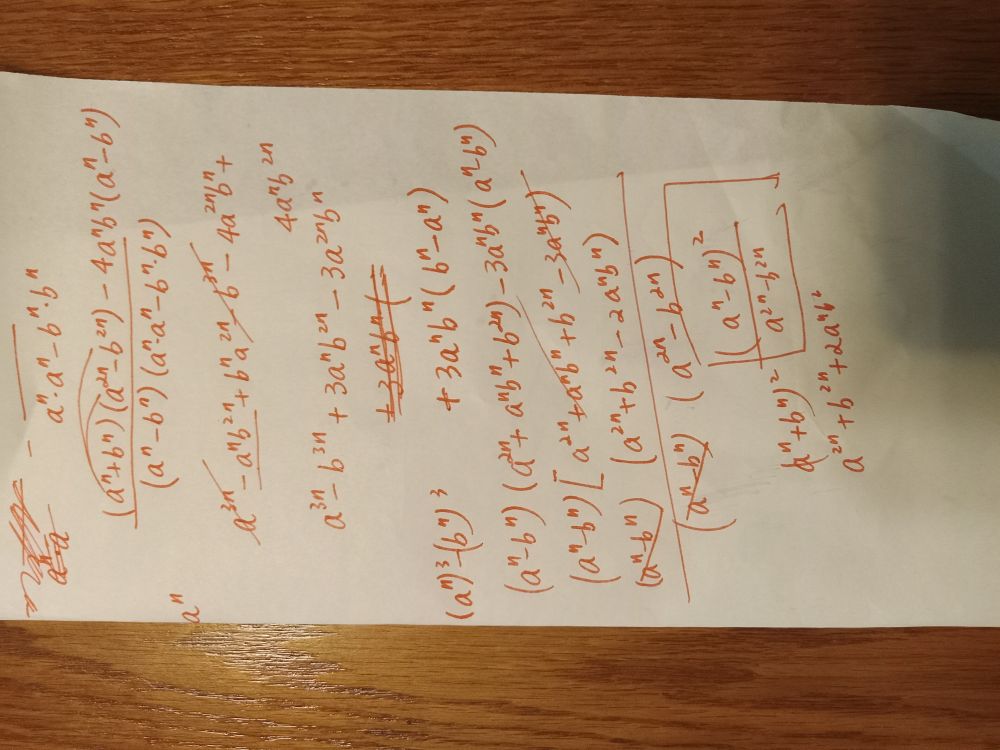 aⁿ·aⁿ − bⁿ·bⁿ
(aⁿ+bⁿ)(a²ⁿ−b²ⁿ) − 4aⁿbⁿ(aⁿ−bⁿ)
(aⁿ−bⁿ)(aⁿ·aⁿ−bⁿ·bⁿ)
aⁿ
a³ⁿ − aⁿb²ⁿ + bⁿa²ⁿ − b³ⁿ − 4a²ⁿbⁿ +
4aⁿb²ⁿ
a³ⁿ − b³ⁿ + 3aⁿb²ⁿ − 3a²ⁿbⁿ
(aⁿ)³−(bⁿ)³ + 3aⁿbⁿ(bⁿ−aⁿ)
(aⁿ−bⁿ)(a²ⁿ+aⁿbⁿ+b²ⁿ) − 3aⁿbⁿ(aⁿ−bⁿ)
(aⁿ−bⁿ)[a²ⁿ+aⁿbⁿ+b²ⁿ−3aⁿbⁿ)
(aⁿ−bⁿ) (a²ⁿ+b²ⁿ−2aⁿbⁿ)
(aⁿ−bⁿ) (a²ⁿ−b²ⁿ)
(aⁿ−bⁿ)²
a²ⁿ−b²ⁿ
(aⁿ+bⁿ)²
a²ⁿ+b²ⁿ+2aⁿb²